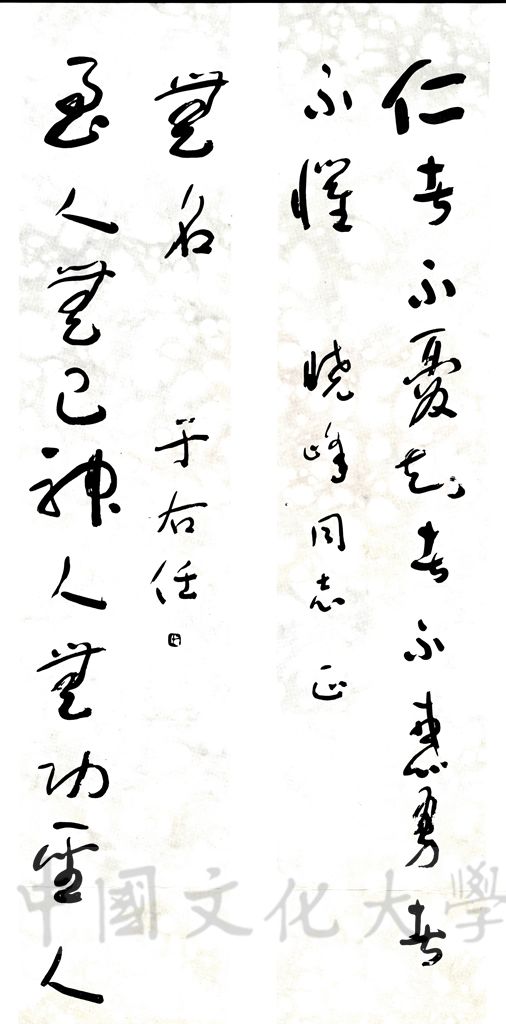 仁者不憂知者不惑勇者
不懼
曉峰同志 正
至人無己神人無功聖人
無名
于右任
中國文化大學